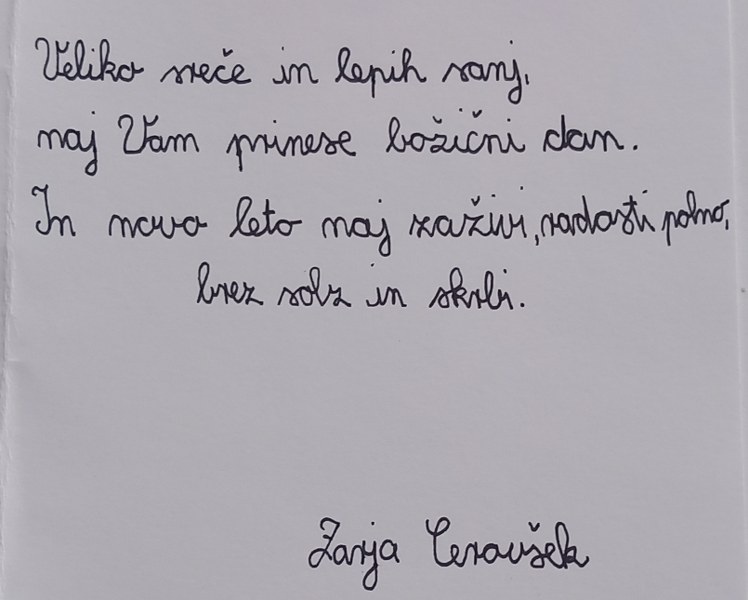 Veliko sreče in lepih sanj,
naj Vam prinese božični dan.
In novo leto naj zaživi, radosti polno,
brez solz in skrbi.
Zarja Cerovšek